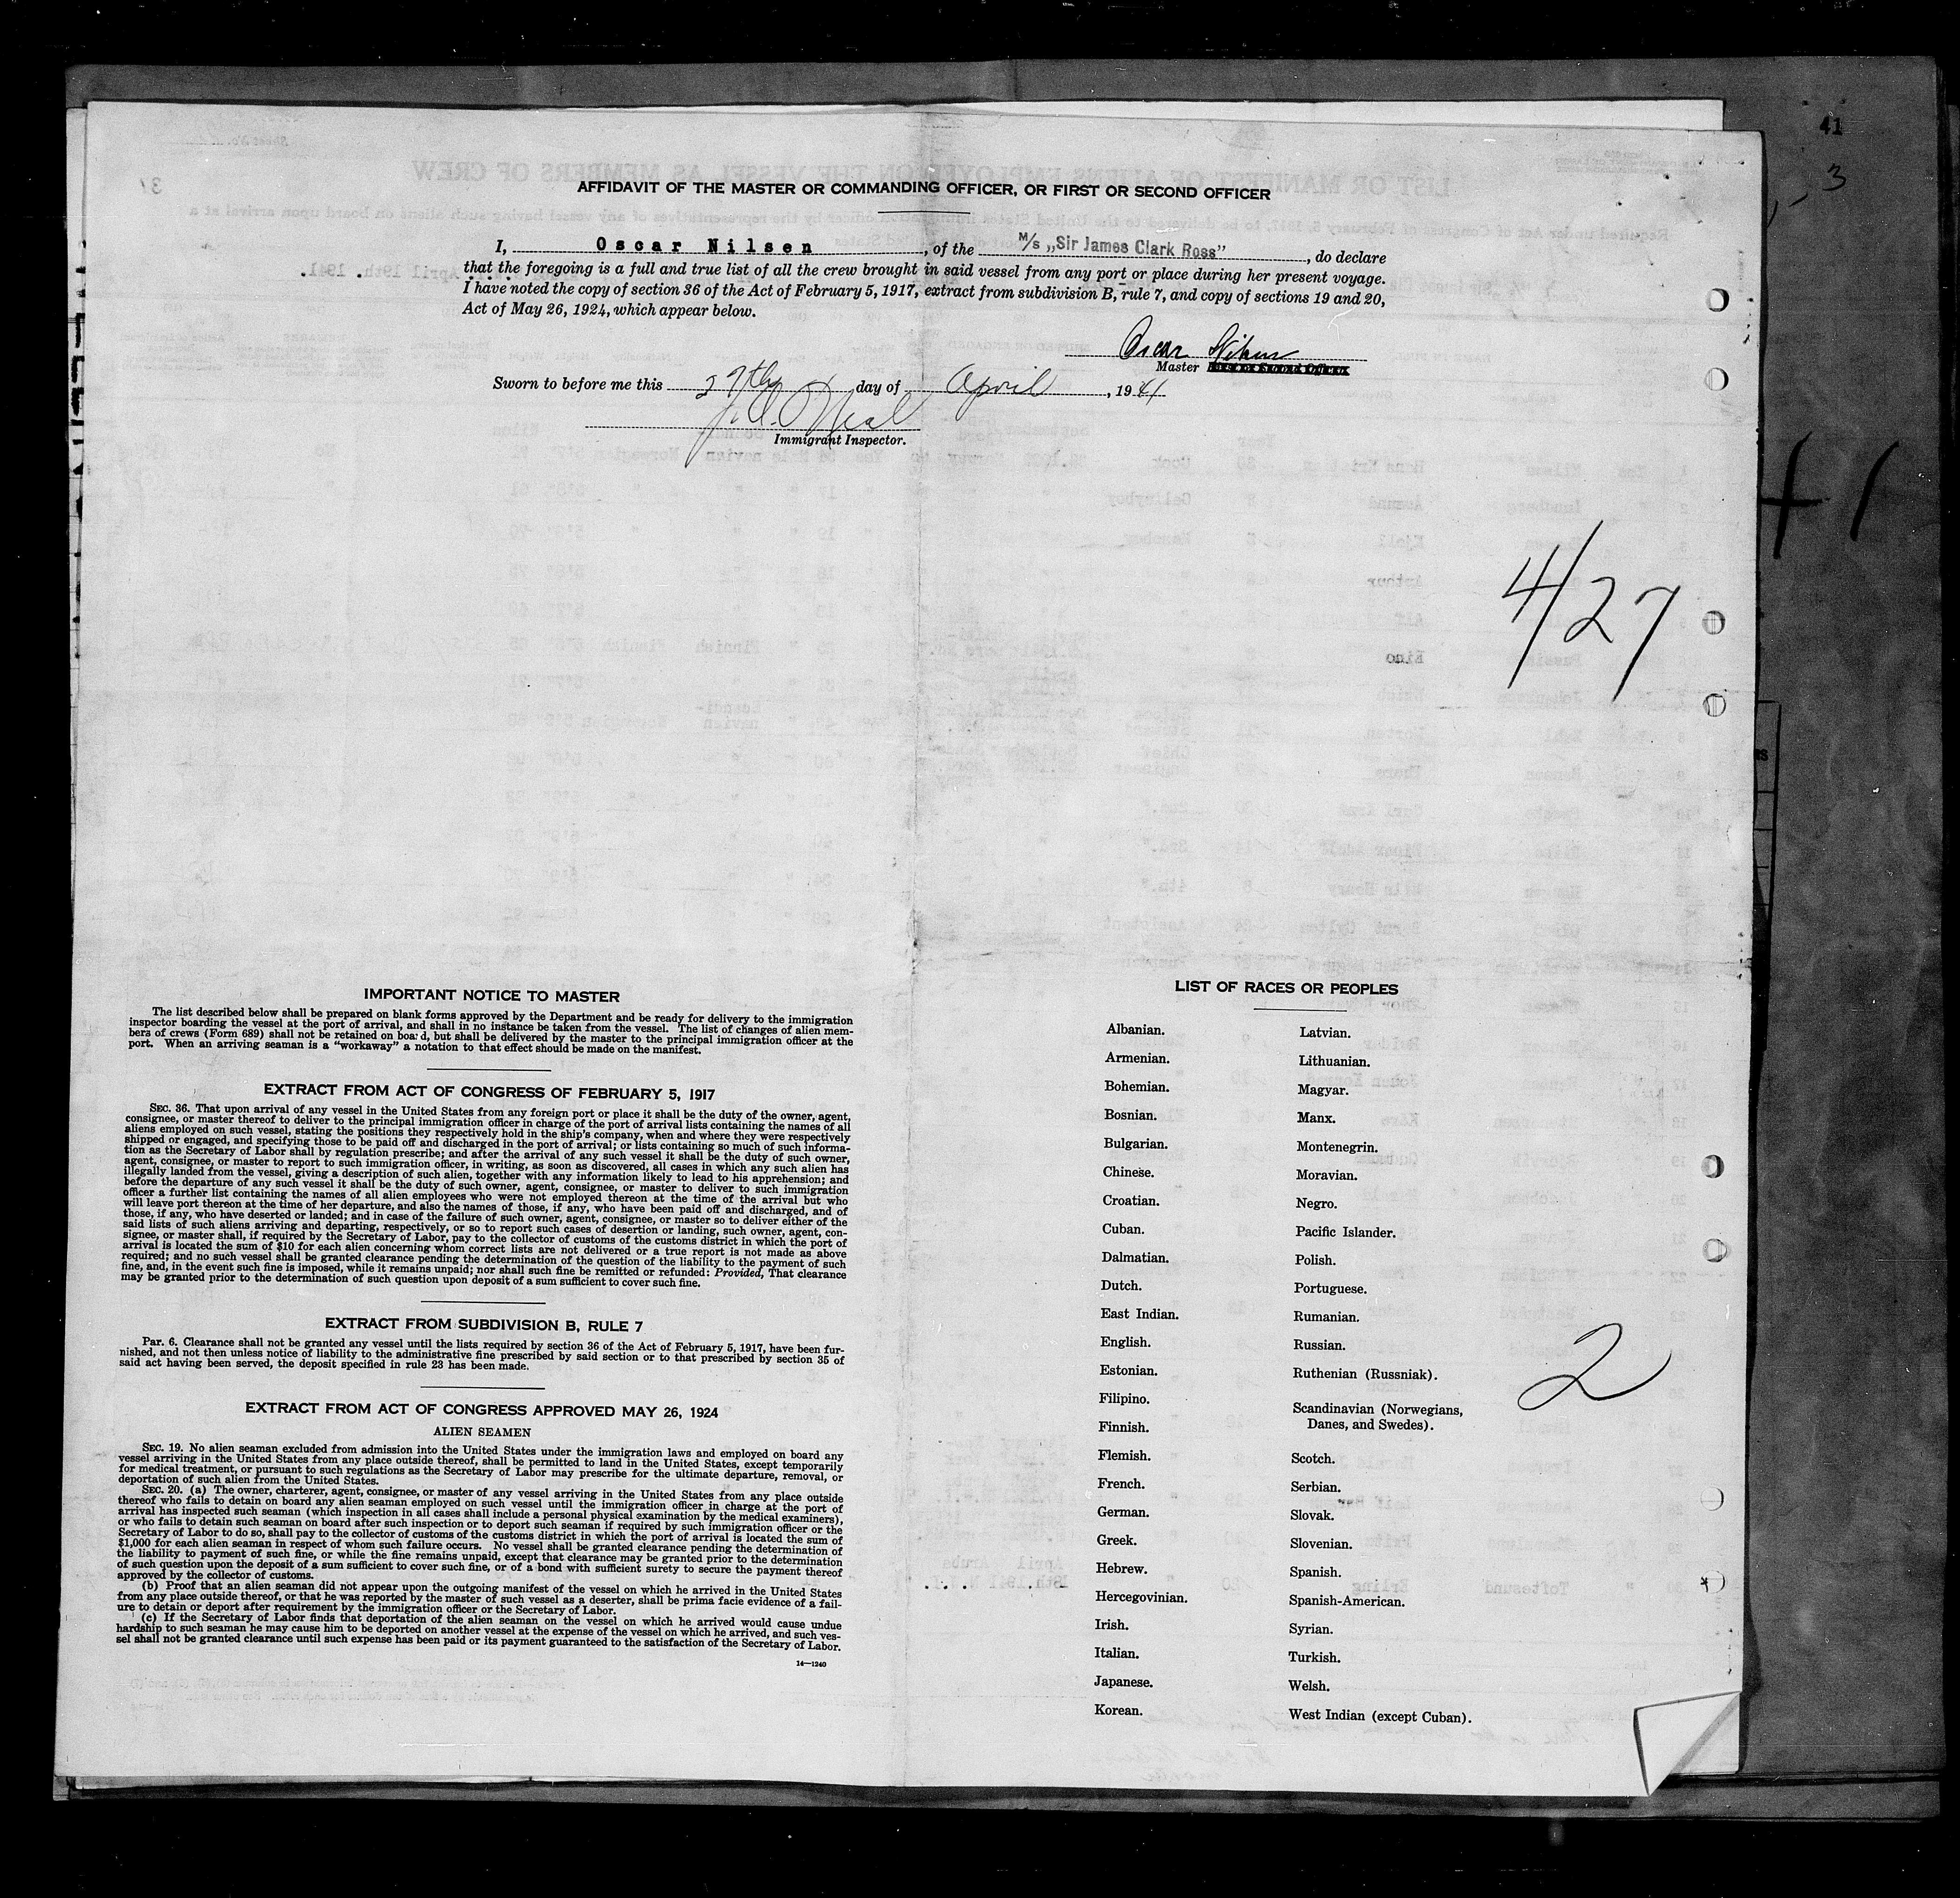 41
3
AFFIDAVIT OF THE MASTER OR COMMANDING OFFICER, OR FIRST OR SECOND OFFICER
I, Oscar Nilsen, of the M/s „Sir James Clark Ross", do declare
that the foregoing is a full and true list of all the crew brought in said vessel from any port or place during her present voyage.
I have noted the copy of section 36 of the Act of February 5, 1917, extract from subdivision B, rule 7, and copy of sections 19 and 20,
Act of May 26, 1924, which appear below.
Oscar Nilsen
Master
Sworn to before me this 27th day of April, 1941
J. A. O'Neal
Immigrant Inspector.
41
4/27
IMPORTANT NOTICE TO MASTER
The list described below shall be prepared on blank forms approved by the Department and be ready for delivery to the immigration
inspector boarding the vessel at the port of arrival, and shall in no instance be taken from the vessel. The list of changes of alien mem-
bers of crews (Form 689) shall not be retained on board, but shall be delivered by the master to the principal immigration officer at the
port. When an arriving seaman is a "workaway" a notation to that effect should be made on the manifest.
EXTRACT FROM ACT OF CONGRESS OF FEBRUARY 5, 1917
SEC. 36. That upon arrival of any vessel in the United States from any foreign port or place it shall be the duty of the owner, agent,
consignee, or master thereof to deliver to the principal immigration officer in charge of the port of arrival lists containing the names of all
aliens employed on such vessel, stating the positions they respectively hold in the ship's company, when and where they were respectively
shipped or engaged, and specifying those to be paid off and discharged in the port of arrival; or lists containing so much of such informa-
tion as the Secretary of Labor shall by regulation prescribe; and after the arrival of any such vessel it shall be the duty of such owner,
agent, consignee, or master to report to such immigration officer, in writing, as soon as discovered, all cases in which any such alien has
illegally landed from the vessel, giving a description of such alien, together with any information likely to lead to his apprehension; and
before the departure of any such vessel it shall be the duty of such owner, agent, consignee, or master to deliver to such immigration
officer a further list containing the names of all alien employees who were not employed thereon at the time of the arrival but who
will leave port thereon at the time of her departure, and also the names of those, if any, who have been paid off and discharged, and of
those, if any, who have deserted or landed; and in case of the failure of such owner, agent, consignee, or master so to deliver either of the
said lists of such aliens arriving and departing, respectively, or so to report such cases of desertion or landing, such owner, agent, con-
signee, or master shall, if required by the Secretary of Labor, pay to the collector of customs of the customs district in which the port of
arrival is located the sum of $10 for each alien concerning whom correct lists are not delivered or a true report is not made as above
required; and no such vessel shall be granted clearance pending the determination of the question of the liability to the payment of such
fine, and, in the event such fine is imposed, while it remains unpaid; nor shall such fine be remitted or refunded: Provided, That clearance
may be granted prior to the determination of such question upon deposit of a sum sufficient to cover such fine.
EXTRACT FROM SUBDIVISION B, RULE 7
Par. 6. Clearance shall not be granted any vessel until the lists required by section 36 of the Act of February 5, 1917, have been fur-
nished, and not then unless notice of liability to the administrative fine prescribed by said section or to that prescribed by section 35 of
said act having been served, the deposit specified in rule 23 has been made.
EXTRACT FROM ACT OF CONGRESS APPROVED MAY 26, 1924
ALIEN SEAMEN
SEC. 19. No alien seaman excluded from admission into the United States under the immigration laws and employed on board any
vessel arriving in the United States from any place outside thereof, shall be permitted to land in the United States, except temporarily
for medical treatment, or pursuant to such regulations as the Secretary of Labor may prescribe for the ultimate departure, removal, or
deportation of such alien from the United States.
SEC. 20. (a) The owner, charterer, agent, consignee, or master of any vessel arriving in the United States from any place outside
thereof who fails to detain on board any alien seaman employed on such vessel until the immigration officer in charge at the port of
arrival has inspected such seaman (which inspection in all cases shall include a personal physical examination by the medical examiners),
or who fails to detain such seaman on board after such inspection or to deport such seaman if required by such immigration officer or the
Secretary of Labor to do so, shall pay to the collector of customs of the customs district in which the port of arrival is located the sum of
$1,000 for each alien seaman in respect of whom such failure occurs. No vessel shall be granted clearance pending the determination of
the liability to payment of such fine, or while the fine remains unpaid, except that clearance may be granted prior to the determination
of such question upon the deposit of a sum sufficient to cover such fine, or of a bond with sufficient surety to secure the payment thereof
approved by the collector of customs.
(b) Proof that an alien seaman did not appear upon the outgoing manifest of the vessel on which he arrived in the United States
from any place outside thereof, or that he was reported by the master of such vessel as a deserter, shall be prima facie evidence of a fail-
ure to detain or deport after requirement by the immigration officer or the Secretary of Labor.
(c) If the Secretary of Labor finds that deportation of the alien seaman on the vessel on which he arrived would cause undue
hardship to such seaman he may cause him to be deported on another vessel at the expense of the vessel on which he arrived, and such ves-
sel shall not be granted clearance until such expense has been paid or its payment guaranteed to the satisfaction of the Secretary of Labor.
14—1240
LIST OF RACES OR PEOPLES
Albanian.
Armenian.
Bohemian.
Bosnian.
Bulgarian.
Chinese.
Croatian.
Cuban.
Dalmatian.
Dutch.
East Indian.
English.
Estonian.
Filipino.
Finnish.
Flemish.
French.
German.
Greek.
Hebrew.
Hercegovinian.
Irish.
Italian.
Japanese.
Korean.
Latvian.
Lithuanian.
Magyar.
Manx.
Montenegrin.
Moravian.
Negro.
Pacific Islander.
Polish.
Portuguese.
Rumanian.
Russian.
Ruthenian (Russniak).
Scandinavian (Norwegians,
Danes, and Swedes).
Scotch.
Serbian.
Slovak.
Slovenian.
Spanish.
Spanish-American.
Syrian.
Turkish.
Welsh.
West Indian (except Cuban).
2